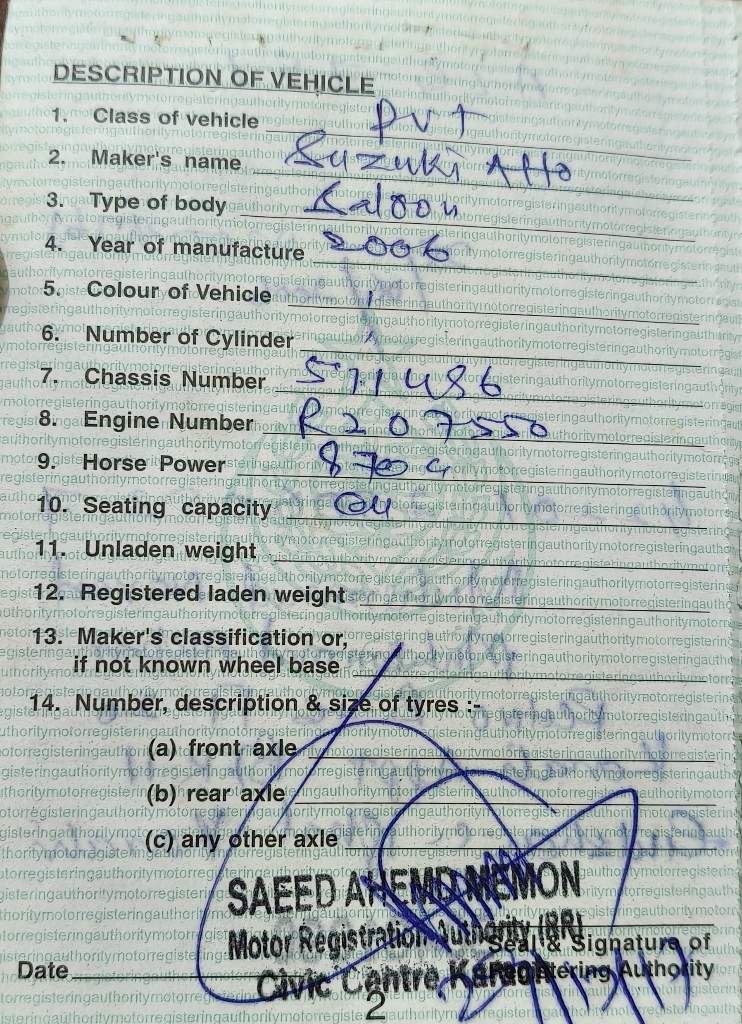 DESCRIPTION OF VEHICLE
1. Class of vehicle PVT
2. Maker's name Suzuki Alto
3. Type of body Saloon
4. Year of manufacture 2006
5. Colour of Vehicle
6. Number of Cylinder
7. Chassis Number 511486
8. Engine Number R207550
9. Horse Power
10. Seating capacity 04
11. Unladen weight
12. Registered laden weight
13. Maker's classification or,
if not known wheel base
14. Number, description & size of tyres :-
(a) front axle
(b) rear axle
(c) any other axle
SAEED AHEMD MEMON
Motor Registration Authority (BR)
Seal & Signature of
Civic Centre Karachi
Date Registering Authority
2